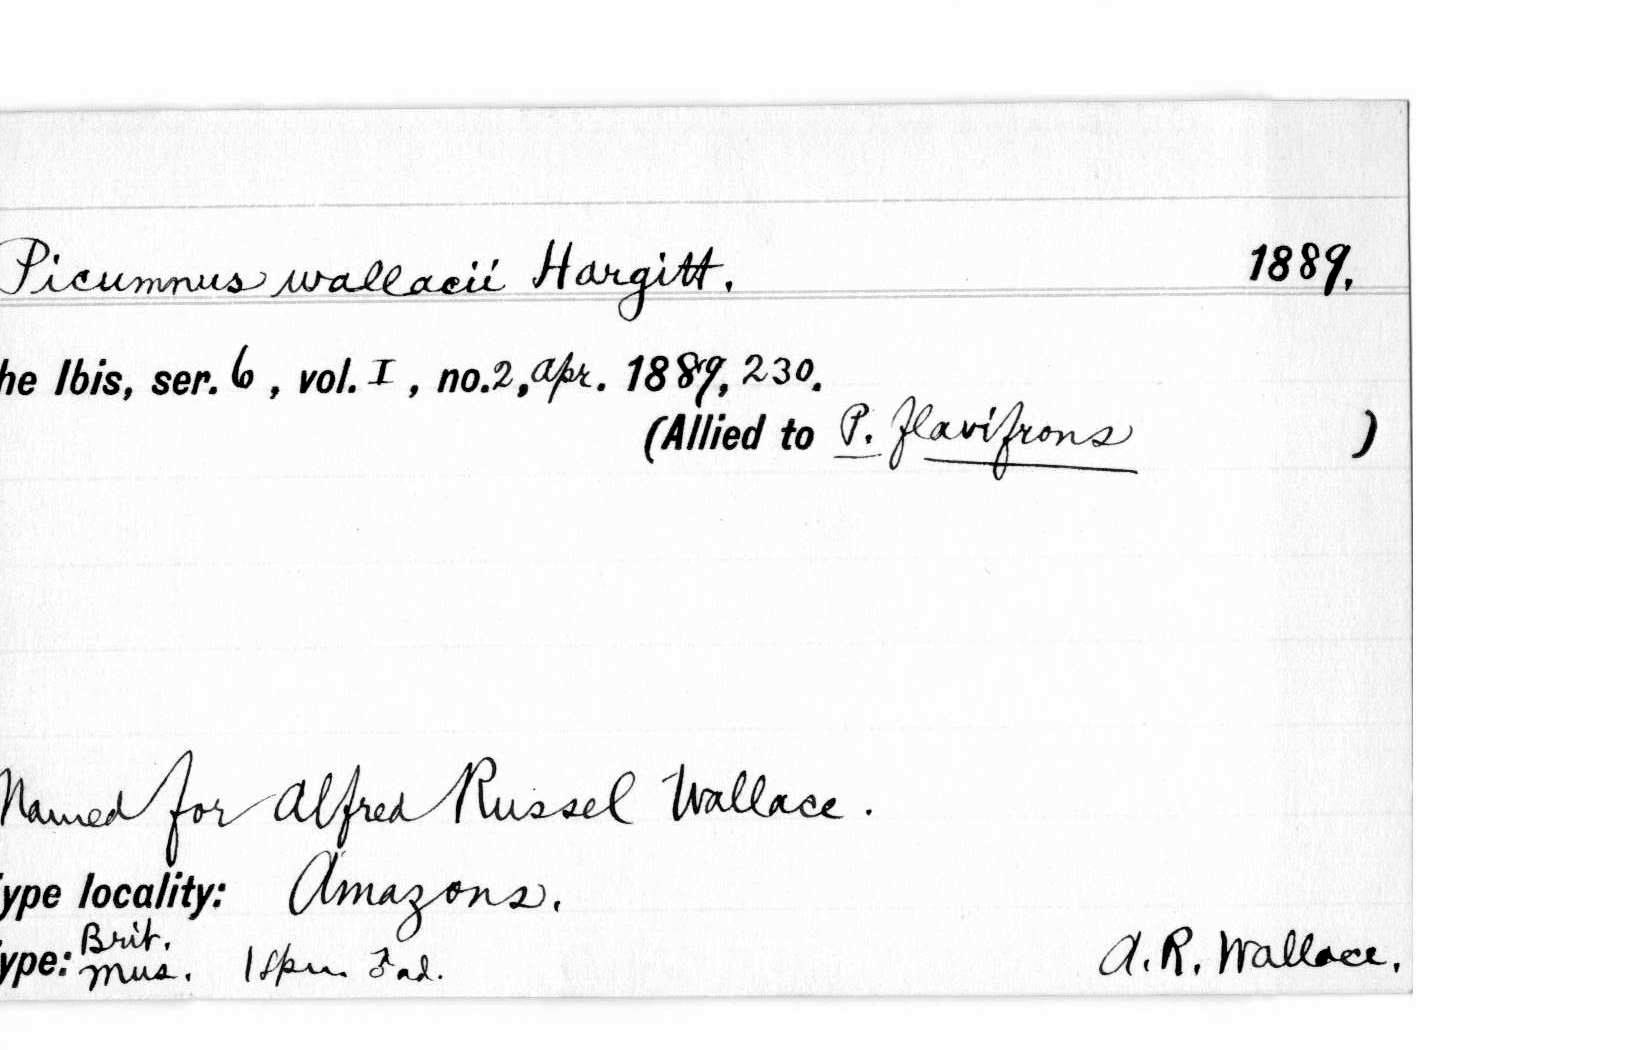 Picumnus wallacii Hargitt. 1889.
he Ibis, ser. 6, vol. I, no. 2, Apr. 1889, 230.
(Allied to P. flavifrons )
Named for Alfred Russel Wallace.
ype locality: Amazons.
ype: Brit. Mus. 1 spm. ad. A. R. Wallace.